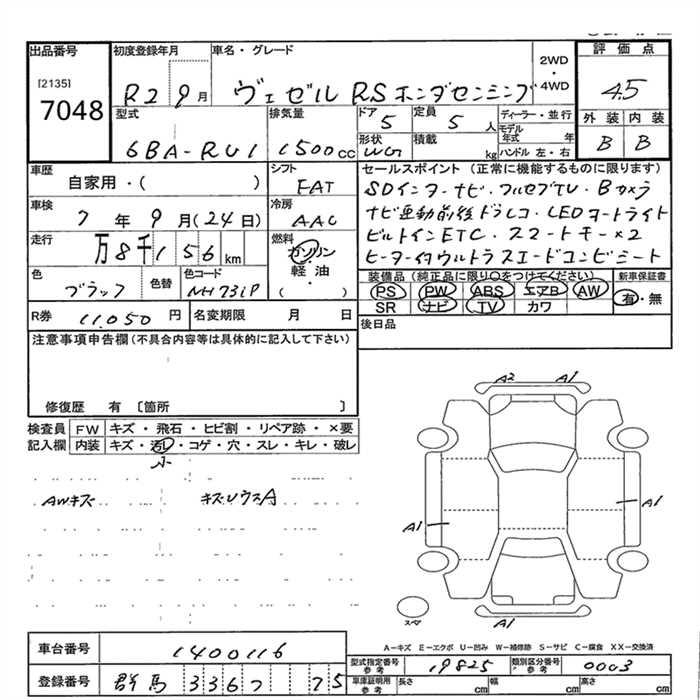 出品番号 初度登録年月 車名・グレード 2WD・4WD 評価点
[2135]
7048
R2 9月 ヴェゼル RSホンダセンシング 4.5
型式 排気量 ドア 定員 ディーラー・並行 外装 内装
6BA-RU1 1500cc 5 5人 モデル年式 年 B B
形状 積載 ハンドル 左・右
WG kg
車歴 シフト セールスポイント(正常に機能するものに限ります)
自家用・( ) FAT SDインターナビ・フルセグTV・Bカメラ
車検 冷房 ナビ連動前後ドラレコ・LEDオートライト
7年9月(24日) AAC ビルトインETC・スマートキー×2
走行 燃料 ヒーター付ウルトラスエードコンビシート
万8千156km ガソリン
軽・油
・( )
色 色替 色コード 装備品(純正品に限り○をつけてください) 新車保証書
ブラック NH731P PS PW ABS エアB AW 有・無
SR ナビ TV カワ
R券 11,050円 名変期限 月 日 後日品
注意事項申告欄(不具合内容等は具体的に記入して下さい)
修復歴 有 〔箇所 〕
検査員記入欄 FW キズ・飛石・ヒビ割・リペア跡・×要
内装 キズ・汚レ・コゲ・穴・スレ・キレ・破レ
小
AWキズ キズUウスA
A2 A1
A1
A1
スペア
A1
A-キズ E-エクボ U-凹み W-補修跡 S-サビ C-腐食 XX-交換済
車台番号 1400116
型式指定番号 参考 19825 類別区分番号 参考 0003
登録番号 群馬 336 75
車庫証明用 参考 長さ cm 幅 cm 高さ cm